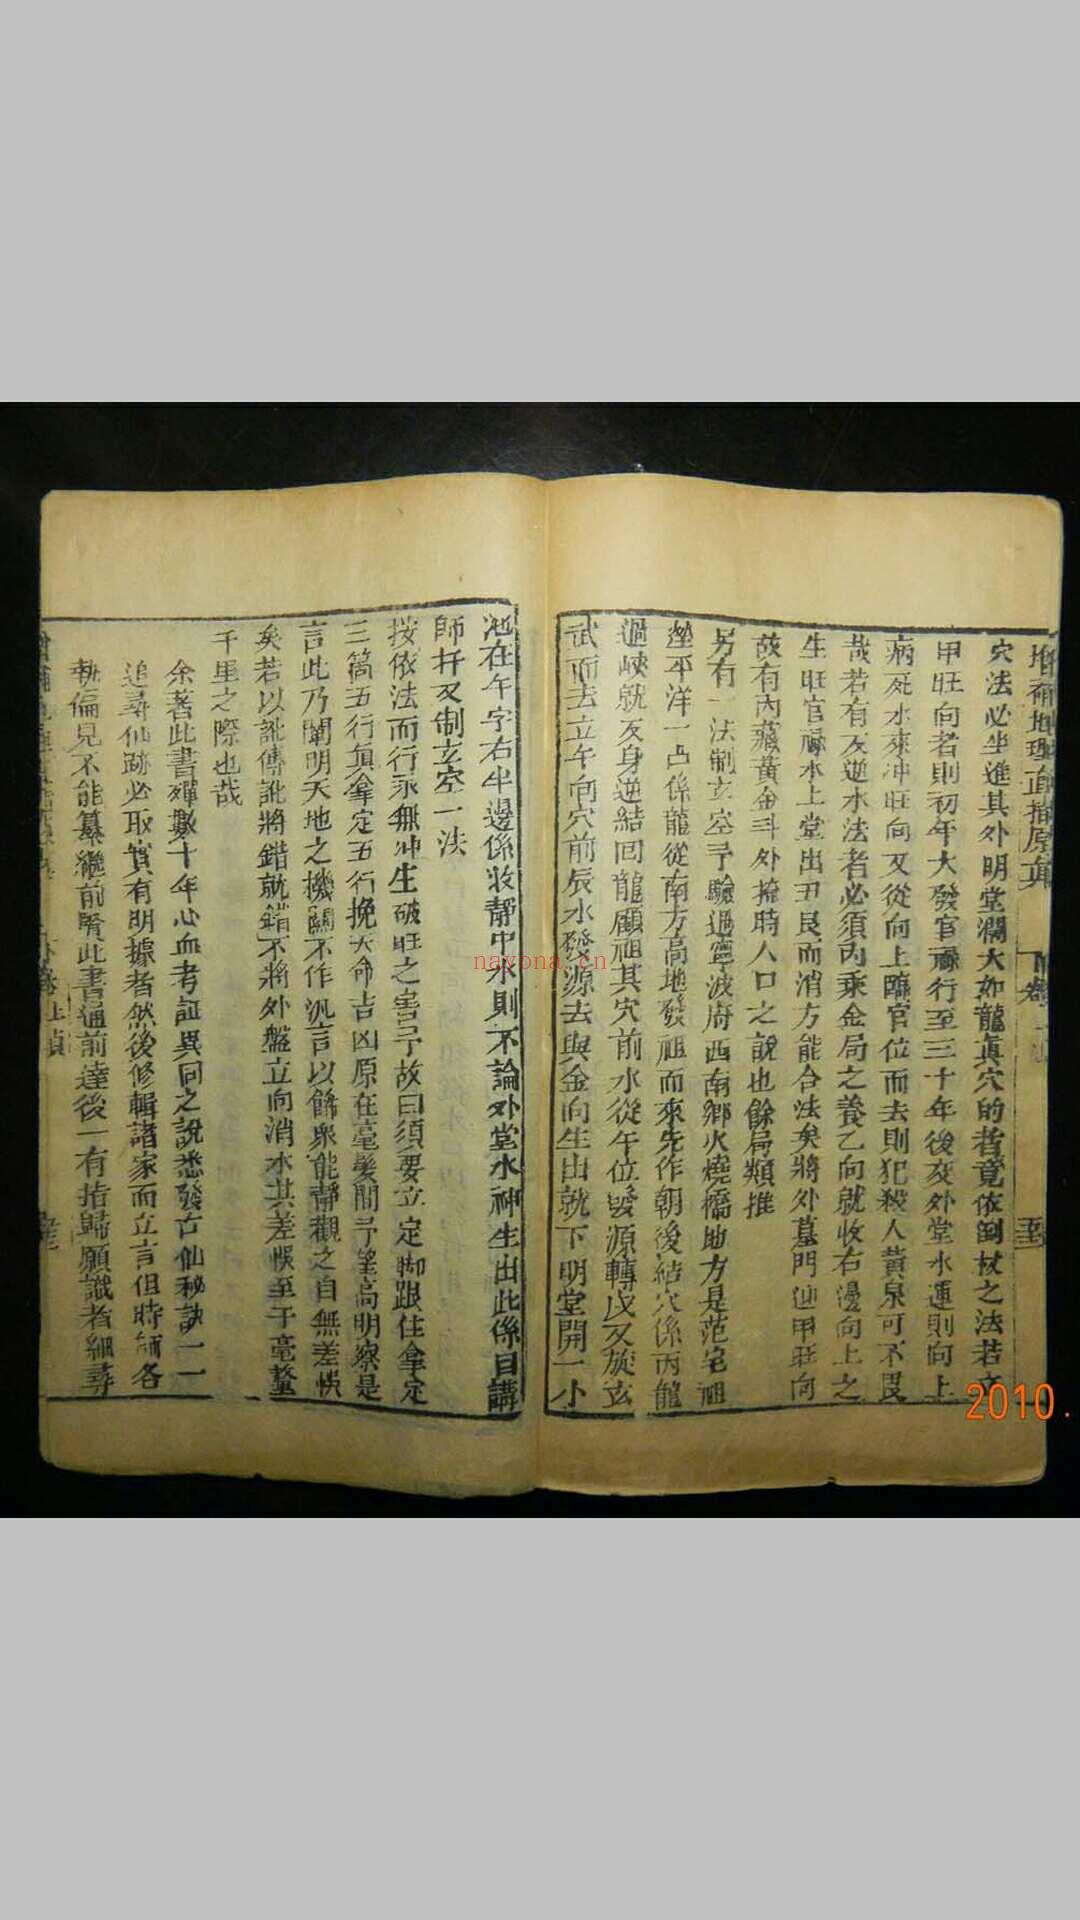 增補地理直指原真
下卷
穴法必坐進其外明堂濶大如龍真穴的者竟依倒杖之法若立
甲旺向者則初年大發官祿行至三十年後交外堂水運則向上
病死水來冲旺向又從向上臨官位而去則犯殺人黃泉可不畏
哉若有反逆水法者必須丙乘金局之養乙向就收右邊向上之
生旺官祿水上堂出丑艮而消方能合法矣將外墓門迎甲旺向
故有內藏黃金斗外掩時人口之說也餘局類推
另有一法制玄空予驗過寧波府西南鄉火燒橋地方是范宅祖
塋平洋一占係龍從南方高地發祖而來先作朝後結穴係丙龍
過峽就反身逆結回龍顧祖其穴前水從午位發源轉戌又旋玄
武而去立午向穴前辰水發源去與金向生出就下明堂開一小
池在午字右半邊係收靜中水則不論外堂水神生出此係目講
師扦又制玄空一法
按依法而行永無冲生破旺之害予故曰須要立定脚跟住拿定
三箇五行須拿定五行挽天命吉凶原在毫髮間予望高明察是
言此乃闡明天地之機關不作汎言以餙眾能靜觀之自無差悞
矣若以訛傳訛將錯就錯不將外盤立向消水其差悞至于毫釐
千里之際也哉
余著此書殫數十年心血考証異同之說悉發古仙秘訣一一
追尋仙跡必取實有明據者然後修輯諸家而立言但時師各
執偏見不能纂繼前賢此書通前達後一有指歸願識者細尋
navona.cn
2010.